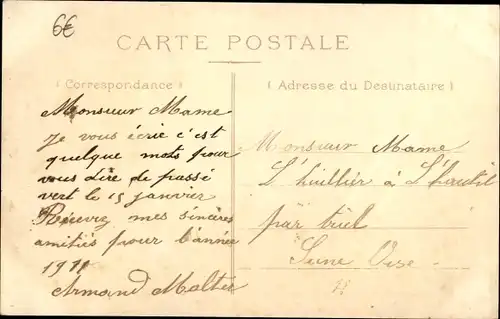 6€
CARTE POSTALE
( Correspondance )
( Adresse du Destinataire )
Monsieur Mame
Je vous écrie c'est
quelque mots pour
vous dire de passé
vert le 15 janvier
Recevez mes sincères
amitiés pour l'année
1911
Armand Maltér
Monsieur Mame
L'huillier à L'hautil
par triel
Seine Oise